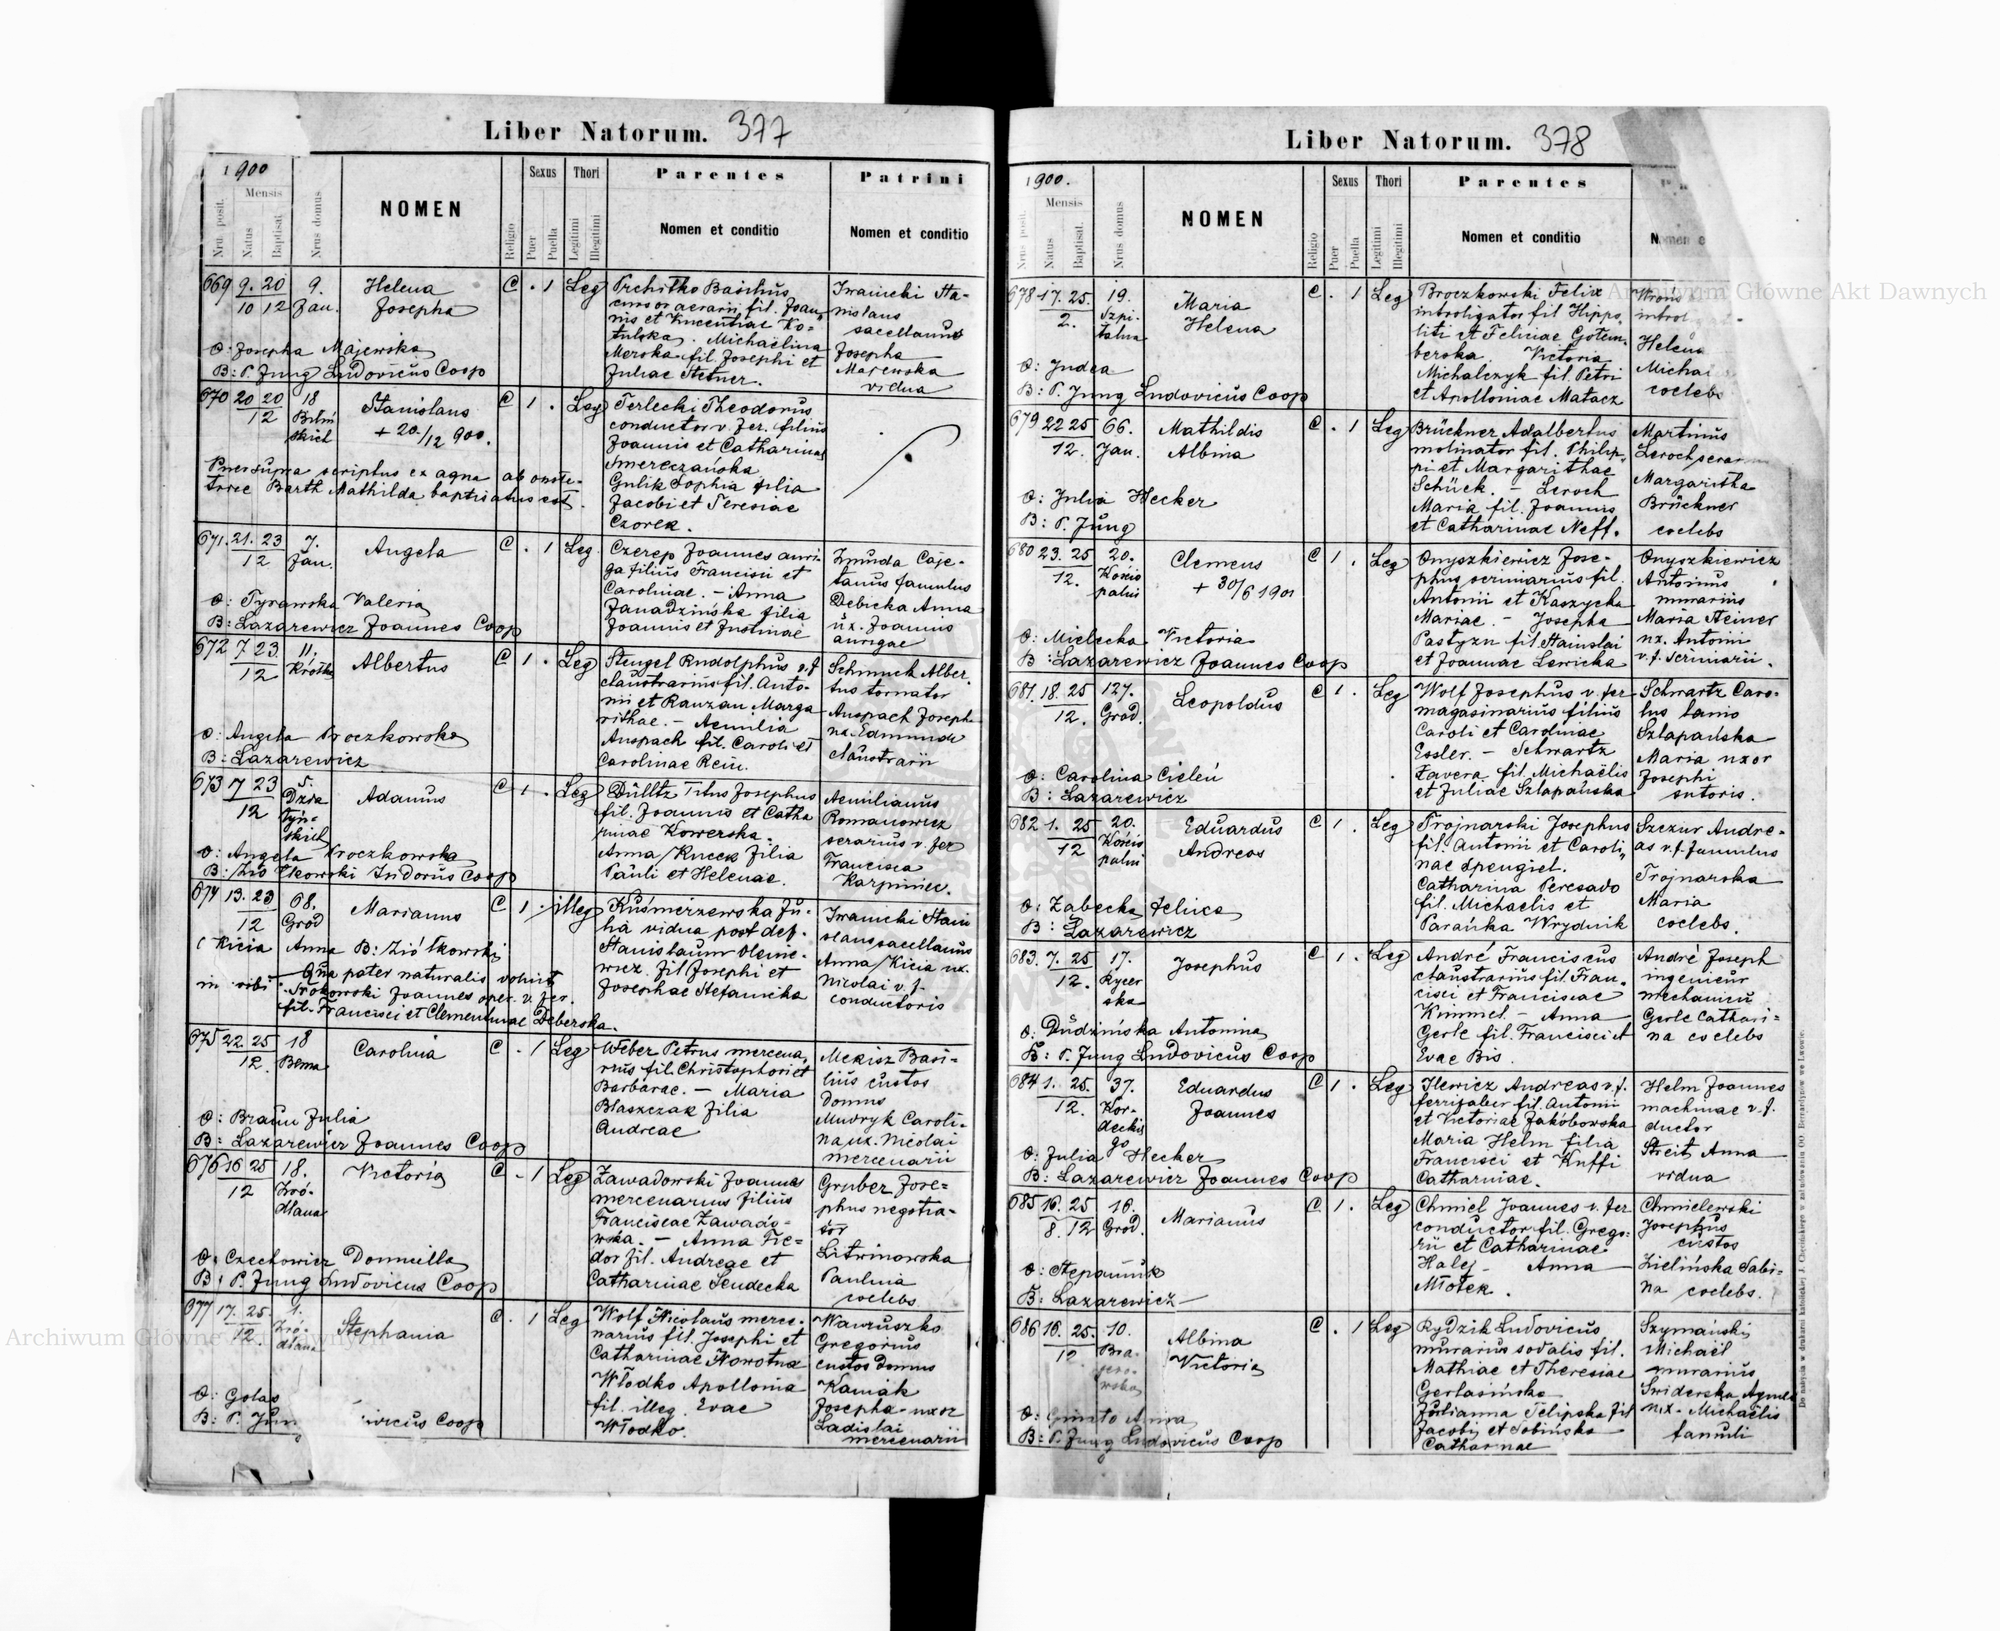 Liber Natorum. 377
1900
Nru. posit.
Mensis
Natus
Baptisat.
Nrus domus
NOMEN
Religio
Sexus
Puer
Puella
Thori
Legitimi
Illegitimi
Parentes
Nomen et conditio
Patrini
Nomen et conditio
669 9. 20 9. Helena C . 1 Leg
10 12 Jan. Josepha
O: Josepha Majewska
B: P. Jung Ludovicus Coop
Prchitko Basilius
cursor aerarii fil. Joan
nis et Vincentiae Ko-
tulska. Michaëlina
Merska fil. Josephi et
Juliae Stetner.
Iwanicki Sta-
nislaus
sacellanus
Josepha
Majewska
vidua
670 20 20 18 Stanislaus C 1 . Leg
12 + 20/12 900.
Puer supra scriptus ex aqua ab obste-
trice Barth Mathilda baptisatus est.
Terlecki Theodorus
conductor v. fer. filius
Joannis et Catharinae
Smereczańska
Gulik Sophia filia
Jacobi et Teresiae
Czorek.
671. 21. 23 7. Angela C . 1 Leg.
12 Jan.
O: Tyrawska Valeria
B: Lazarewicz Joannes Coop
Czerep Joannes auri-
ga filius Francisci et
Carolinae. - Anna
Zawadzińska filia
Joannis et Justinae
Zmuda Caje-
tanus famulus
Debicka Anna
ux. Joannis
aurigae
672 7 23. 11. Albertus C 1 . Leg
12 Krótka
O: Angela Kroczkowska
B: Lazarewicz
Stengel Rudolphus v. f
claustrarius fil. Anto-
nii et Rauzau Marga
rithae. - Aemilia
Anspach fil. Caroli et
Carolinae Rein.
Schmuck Alber
tus tornator
Anspach Joseph
ux. Edmundi
claustrarii
673 7 23 5. Adamus C 1 . Leg
12 Dzia
łyń-
skich
O: Angela Kroczkowska
B: Ziółkowski Indorus Coop
Düllz Titus Josephus
fil. Joannis et Catha
rinae Kowerska.
Anna Kucek filia
Pauli et Helenae.
Aemilianus
Romanowicz
serarius v. fer
Francisca
Karpiniec.
674 13. 23 68. Marianus C 1 . illeg
12 Grod
Kicia Anna B: Ziółkowski
Qua pater naturalis voluit
in ribi Srokowski Joannes oper. v. fer.
fil. Francisci et Clementinae Deberska.
Kuśmierzewska Ju-
lia vidua post def.
Stanislaum Oleine-
wicz. fil Josephi et
Josephae Stefanicka
Iwanicki Stani
slaus sacellanus
Anna Kicia ux.
Nicolai v. f.
conductoris
675 22. 25 18 Carolina C . 1 Leg
12. Bema
O: Braun Julia
B: Lazarewicz Joannes Coop
Weber Petrus mercena
rius fil. Christophori et
Barbarae. - Maria
Błaszczak filia
Andreae
Mekisz Basi-
lius custos
domus
Mudryk Caroli-
na ux. Nicolai
mercenarii
676 16 25 18. Victoria C . 1 Leg
12 Zró-
dlana
O: Czechowicz Domicilla
B: P. Jung Ludovicus Coop
Zawadowski Joannes
mercenarius filius
Franciscae Zawado-
wska. - Anna Fie-
dor fil. Andreae et
Catharinae Sendecka
Gruber Jose-
phus negotia-
tor
Litwinowska
Paulina
coelebs.
677 17. 25. 1. Stephania C . 1 Leg
12. Zró-
dlana
O: Golas
B: P. Jun icus Coop
Wolf Nicolaus merce-
narius fil. Josephi et
Catharinae Nowotna
Włodko Apollonia
fil. illeg. Evae
Włodko.
Wawruszko
Gregorius
custos domus
Kaniak
Josepha uxor
Ladislai
mercenarii
Liber Natorum. 378
1900.
Nrus posit.
Mensis
Natus
Baptisat.
Nrus domus
NOMEN
Religio
Sexus
Puer
Puella
Thori
Legitimi
Illegitimi
Parentes
Nomen et conditio
Nomen e
678 17. 25. 19. Maria C . 1 Leg
2. Szpi- Helena
talna
O: Judca
B: P. Jung Ludovicus Coop
Broczkowski Felix
introligator fil Hippo
liti et Feliciae Gotem-
berska. Victoria
Michalczyk fil. Petri
et Apolloniae Matacz
Wrons
introligat
Helena
Michai
coelebs
679 22 25 66. Mathildis C . 1 Leg
12. Jan. Albina
O: Julia Hecker
B: P. Jung
Brückner Adalbertus
molinator fil. Philip-
pi et Margarithae
Schück. - Leroch
Maria fil. Joannis
et Catharinae Neff.
Martinus
Leroch serar
Margaritha
Brückner
coelebs
680 23. 25 20. Clemens C 1 . Leg
12. Kościo + 30/6 1901
palni
O: Mielecka Victoria
B: Lazarewicz Joannes Coop
Onyszkiewicz Jose-
phus scriniarius fil.
Antonii et Kaszycka
Mariae. - Josepha
Pastyzn fil. Stanislai
et Joannae Lewicka
Onyszkiewicz
Antonius
murarius
Maria Steiner
ux. Antonii
v. f. scriniarii.
681. 18. 25 127. Leopoldus C 1 . Leg
12. Grod.
O: Carolina Cieleń
B: Lazarewicz
Wolf Josephus v. fer
magasinarius filius
Caroli et Carolinae
Essler. - Schwartz
Xavera fil. Michaëlis
et Juliae Szlapańska
Schwartz Caro-
lus lanio
Szlapańska
Maria uxor
Josephi
sutoris.
682 1. 25 20. Eduardus C 1 . Leg
12 Kościo Andreas
palni
O: Zabecka Felicia
B: Lazarewicz
Trojnarski Josephus
fil. Antonii et Caroli-
nae Spengiel.
Catharina Peresado
fil. Michaelis et
Parańka Wrydnik
Szczur Andre-
as v. f. famulus
Trojnarska
Maria
coelebs.
683. 7. 25 17. Josephus C 1 . Leg
12. Rycer
ska
O: Dudzińska Antonina
B: P. Jung Ludovicus Coop
André Franciscus
claustrarius fil. Fran-
cisci et Franciscae
Kimmel. - Anna
Gerle fil. Francisci et
Evae Bis.
André Joseph
ingenieur
mechanicu
Gerle Cathari-
na coelebs
684 1. 25. 37. Eduardus C 1 . Leg
12. Kor- Joannes
deckie
go
O: Julia Hecker
B: Lazarewicz Joannes Coop
Ilewicz Andreas v. f.
ferrifaber fil. Antonii
et Victoriae Jakóbowska
Maria Helm filia
Francisci et Kuffi
Catharinae.
Helm Joannes
machinae v. f.
ductor
Streit Anna
vidua
685 16. 25 16. Marianus C 1 . Leg
8. 12 Grod.
O: Stepaniuk
B: Lazarewicz
Chmiel Joannes v. fer
conductor fil. Grego-
rii et Catharinae
Halej - Anna
Młotek.
Chmielewski
Josephus
custos
Zielińska Sabi-
na coelebs.
686 16. 25. 10. Albina C . 1 Leg
12 Victoria
O: Anna
B: P. Jung Ludovicus Coop
Rydzik Ludovicus
murarius sodalis fil.
Mathiae et Theresiae
Gerlasińska
Julianna Telipska fil
Jacobi et Sobińska
Catharinae
Szymański
Michaël
murarius
Swiderska Agnes
ux. Michaëlis
famuli
Archiwum Główne Akt Dawnych
Archiwum Główne Akt Dawnych